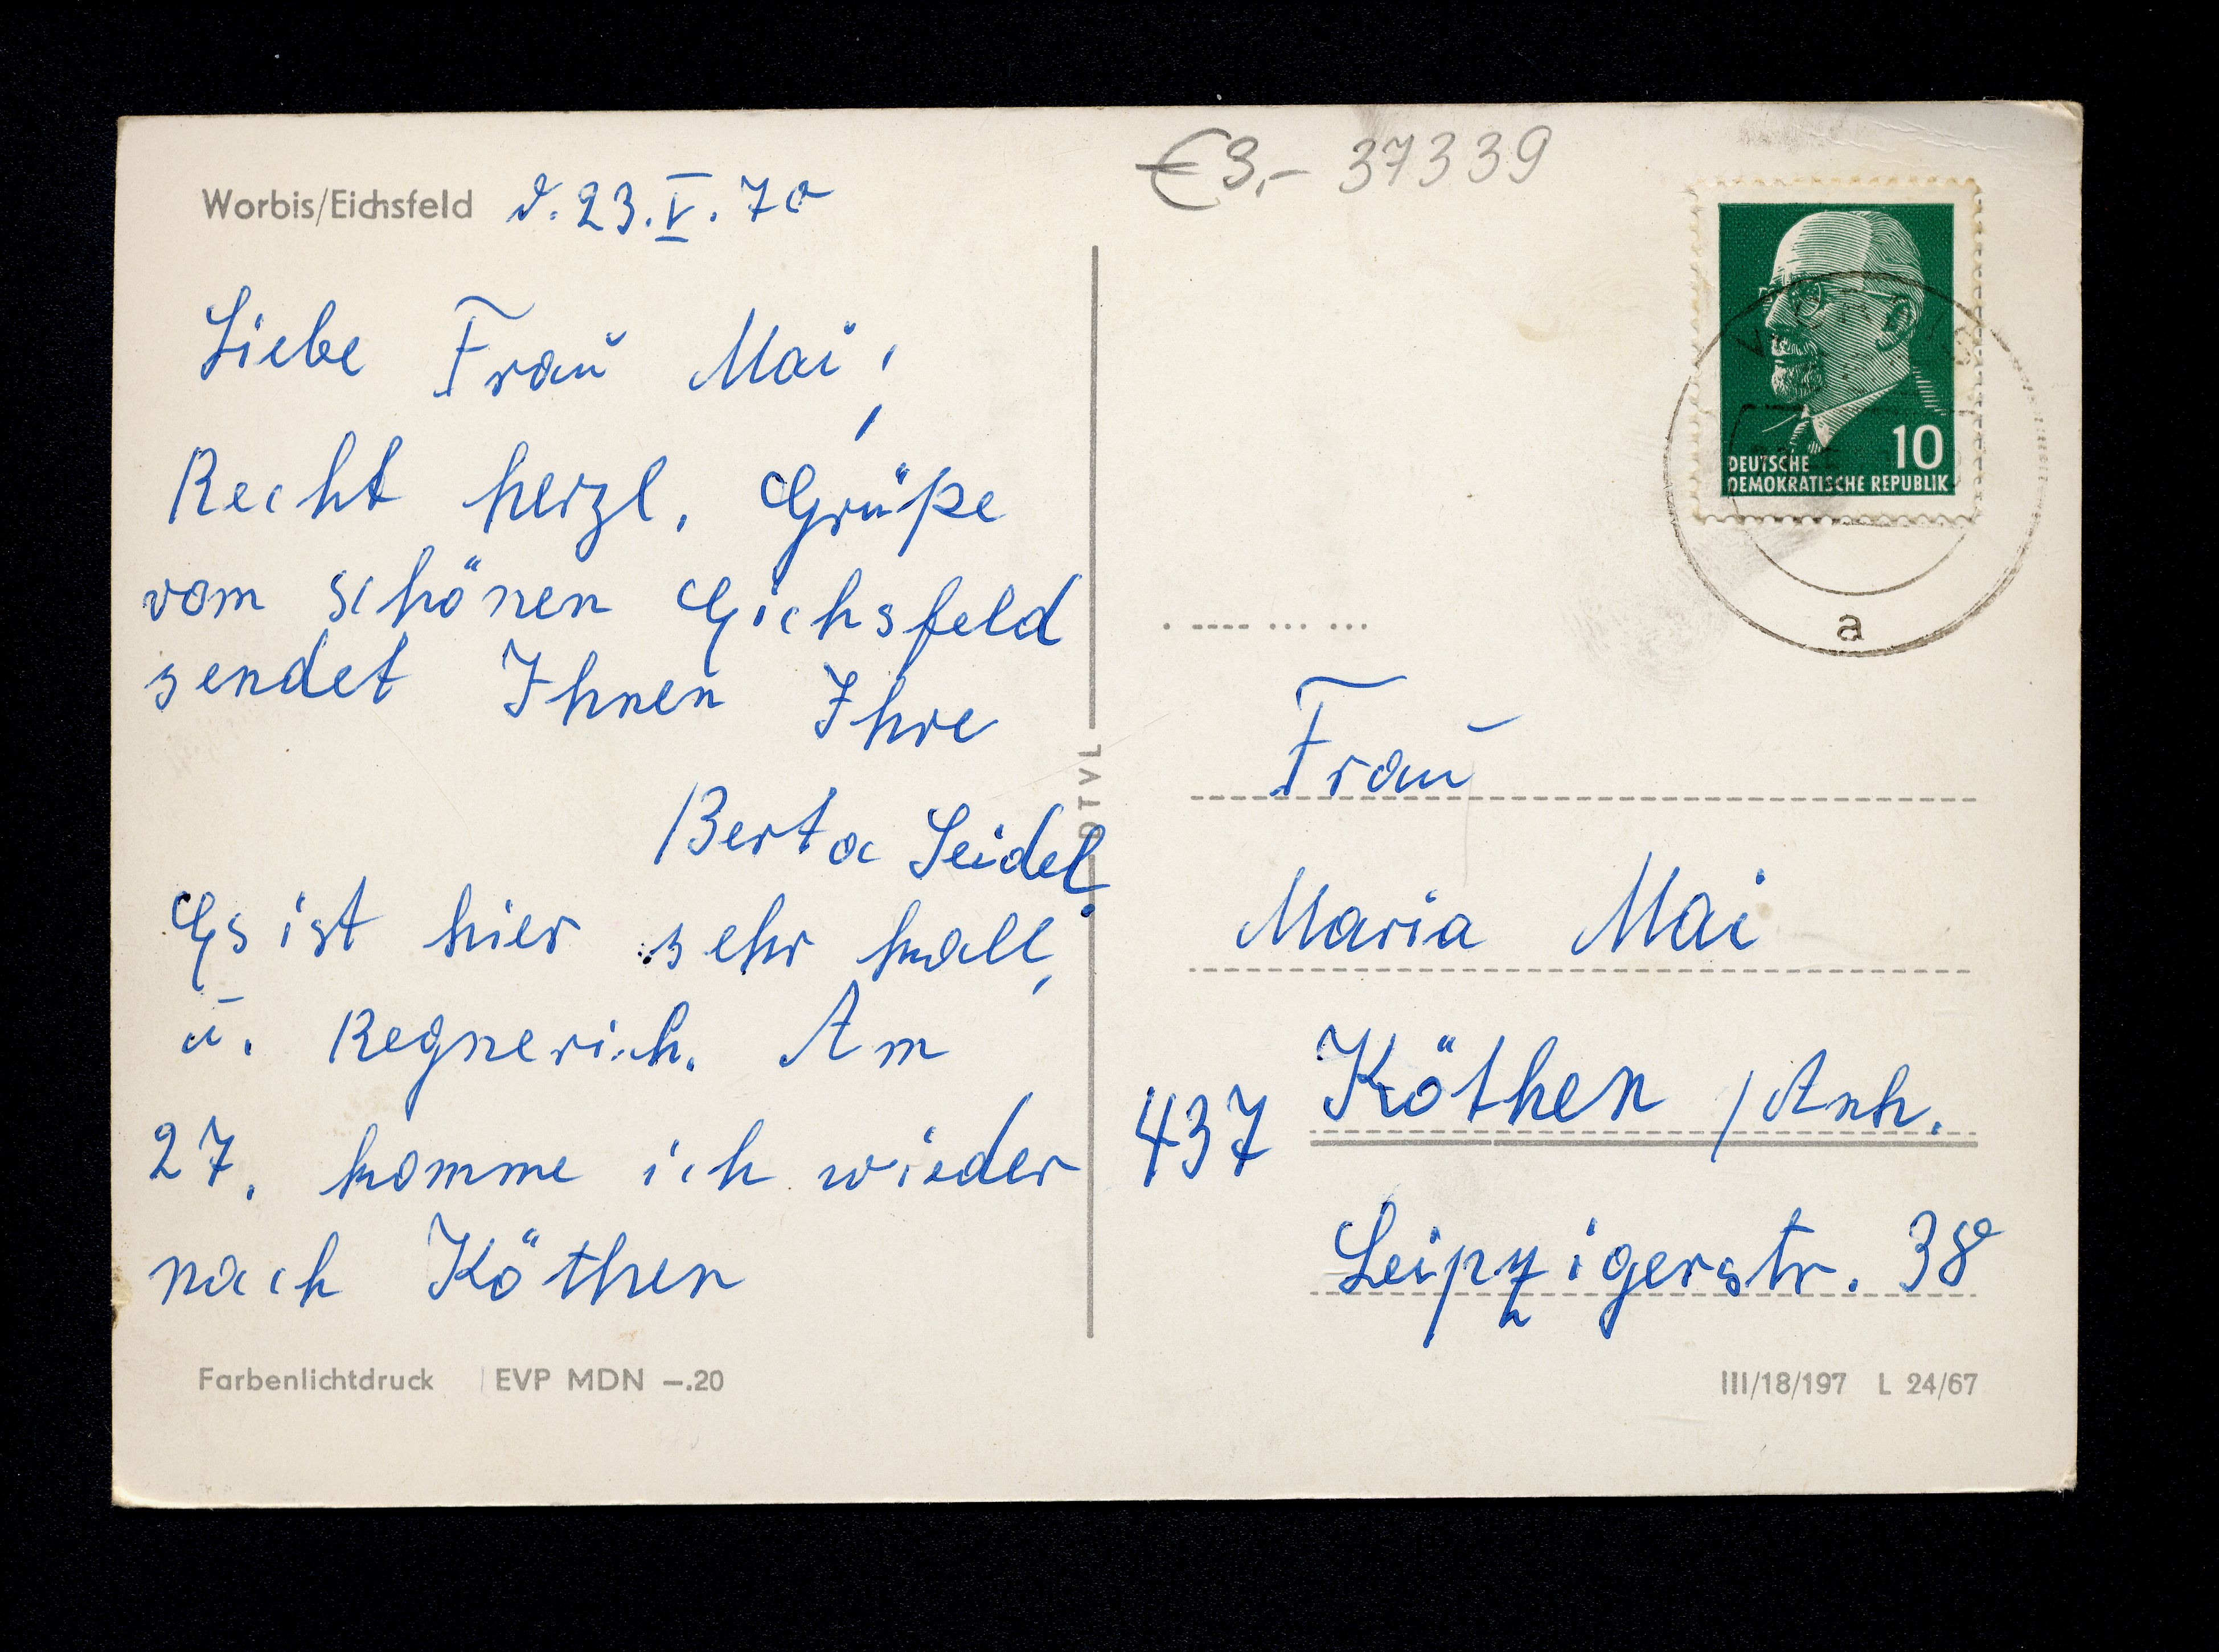 Worbis/Eichsfeld d. 23. V. 70
Liebe Frau Mai!
Recht herzl. Grüße
vom schönen Eichsfeld
sendet Ihnen Ihre
Berta Seidel.
Es ist hier sehr kalt,
u. Regnerich. Am
27. komme ich wieder
nach Köthen
Farbenlichtdruck EVP MDN —.20
DTVL
€ 3,- 37339
10
DEUTSCHE
DEMOKRATISCHE REPUBLIK
a
Frau
Maria Mai
437 Köthen / Anh.
Leipzigerstr. 38
III/18/197 L 24/67